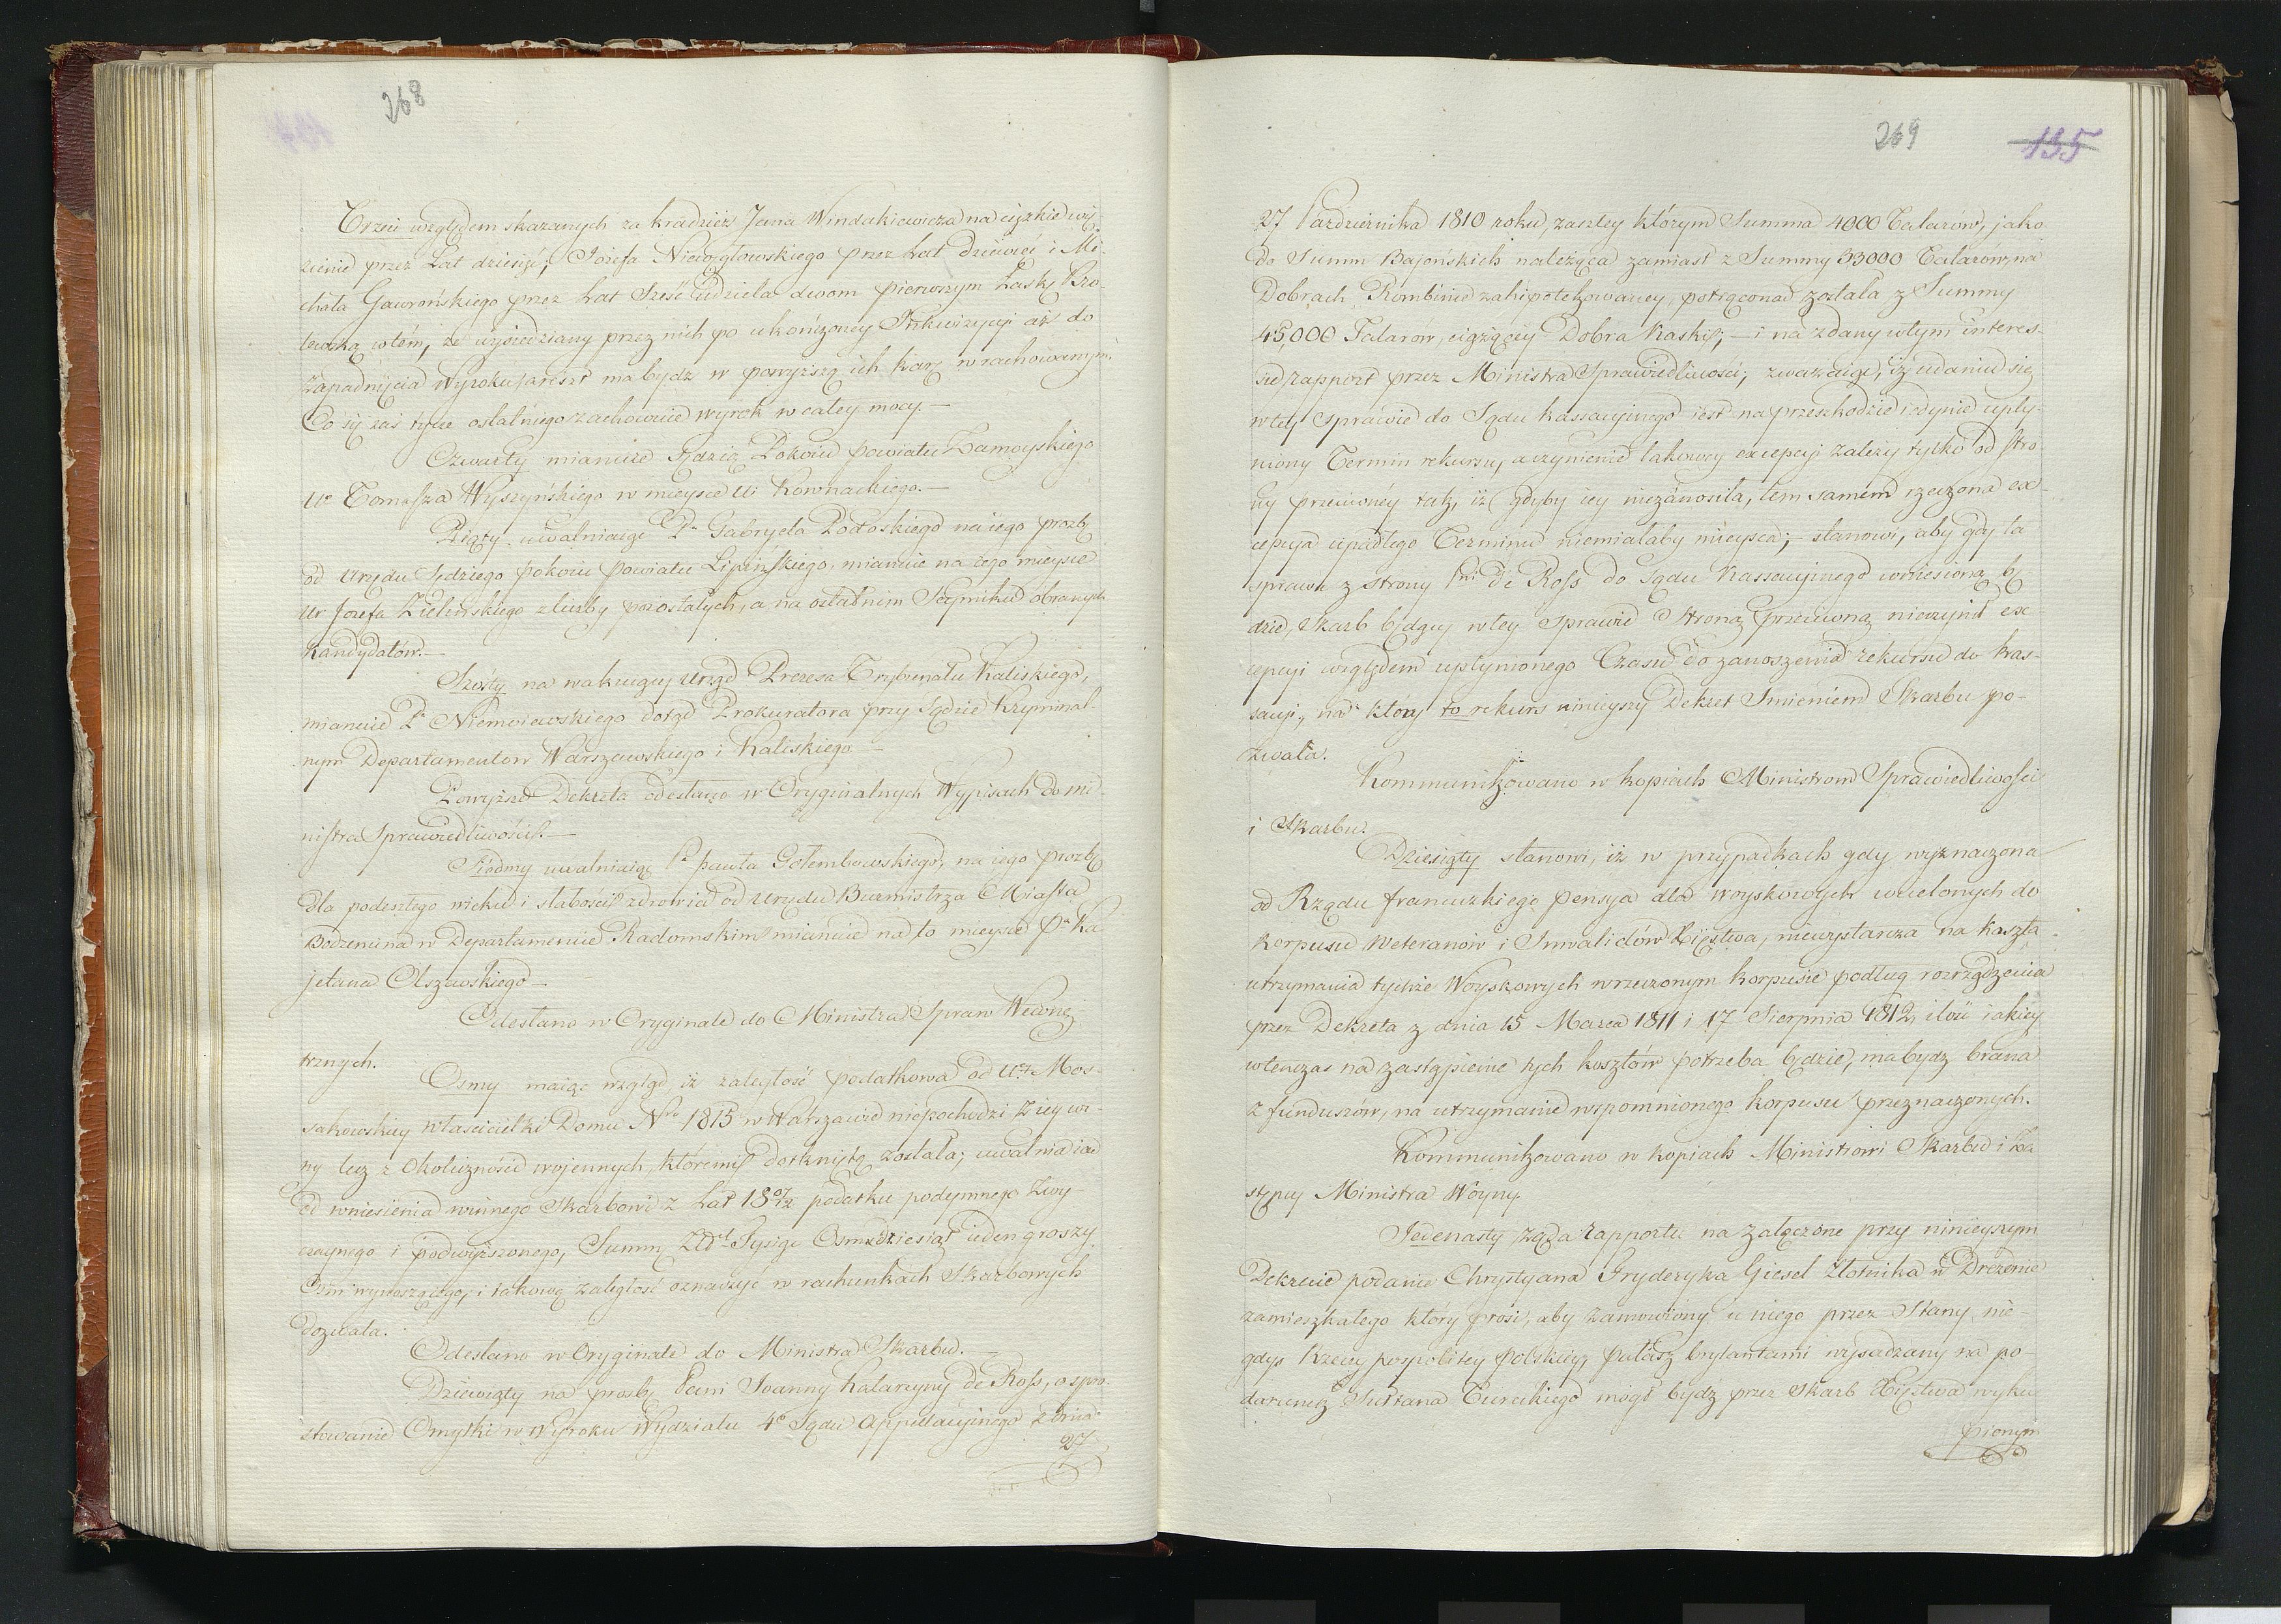 268
Trzeci względem skazanych za kradzież Jana Windakiewicza na ciężkie wię-
zienie przez Lat dziesięć, Józefa Niewęgłowskiego przez Lat dziewięć i Mi-
chała Gawrońskiego przez Lat Sześć udziela dwom pierwszym Łaskę Kro-
lewską wtém, że wysiedziany przez nich po ukończoney Inkwizycyi aż do
zapadnięcia Wyroku areszt ma bydź w powyższą ich karę wrachowanym;
Co się zaś tycze ostatniego zachowuie wyrok w całey mocy.—
Czwarty mianuie Sędzią Pokoiu powiatu Zamoyskiego
Ur Tomasza Wyszyńskiego w mieysce Ur Kownackiego.—
Piąty uwalniaiąc Pa Gabryela Podoskiego na iego prozbę
od Urzędu Sędziego pokoiu powiatu Lipińskiego, mianuie na iego mieysce
Ur Jozefa Zielińskiego z liczby pozostałych, a na ostatnim Seymiku obranych
Kandydatów.—
Szósty na wakuiący Urząd Prezesa Trybunału Kaliskiego,
mianuie Pa Niemoiewskiego dotąd Prokuratora przy Sądzie Kryminal-
nym Departamentow Warszawskiego i Kaliskiego.—
Powyższe Dekreta odesłano w Oryginalnych Wypisach do Mi-
nistra Sprawiedliwości.—
Siódmy uwalniaiąc Pa Pawła Gołembowskiego, na iego prozbę
dla podeszłego wieku i słabości zdrowia od Urzędu Burmistrza Miasta
Bodzencina w Departamencie Radomskim mianuie na to mieysce Pa Ka-
jetana Olszewskiego—
Odesłano w Oryginale do Ministra Spraw Wewnę-
trznych.
Osmy maiąc wzgląd, iż zaległość podatkowa od Ur Mos-
sakowskiey właścicielki Domu Nro 1815 w Warszawie niepochodzi z iey wi-
ny lecz z okoliczności wojennych, któremi dotkniętą została; uwalnia ią
od wniesienia winnego Skarbowi z Lat 18 07/12 podatku podymnego zwy-
czaynego i podwyższonego, Summę Złt Tysiąc Osmdziesiąt ieden groszy
Osm wynoszącego, i takową zaległość oznaczyć w rachunkach Skarbowych
dozwala.
Odesłano w Oryginale do Ministra Skarbu.—
Dziewiąty na prosbę Pani Joanny Katarzyny de Ross, o spro-
stowanie Omyłki w Wyroku Wydziału 4o Sądu Appellacyinego z dnia
27
269
135
27 Pazdziernika 1810 roku, zaszłey którym Summa 4000 Talarów, jako
do Summ Bajońskich należąca zamiast z Summy 33000 Talarów, na
Dobrach Rombinie zahipotekowaney, potrąconą została z Summy
45,000 Talarow, ciążącey Dobra Kaski;— i na zdany wtym interes-
sie rapport przez Ministra Sprawiedliwości; zważaiąc, iż udaniu się
w tej sprawie do Sądu kassacyjnego iest na przeszkodzie iedynie upły-
niony Termin rekursu, a czynienie takowey excepcyi zależy tylko od stro-
ny przeciwnéy tak, iż gdyby iey niezanosiła, tem samém rzeczona ex-
cepcya upadłego Terminu niemiałaby mieysca;— stanowi, aby gdy ta
sprawa z strony Pni De Ross do Sądu Kassacyinego wniesioną bę
dzie, Skarb będący w tey sprawie Stroną przeciwną nieczynił ex
cepcyi względem upłynionego Czasu do zanoszenia rekursu do Kas-
sacyi, na który to rekurs ninieyszy Dekret Imieniem Skarbu po-
zwala.
Kommunikowano w kopiach Ministrom Sprawiedliwości
i Skarbu.
Dziesiąty stanowi, iż w przypadkach gdy wyznaczona
od Rządu francuzkiego pensya dla woyskowych wcielonych do
Korpusu Weteranów i Inwalidów Xięstwa, niewystarcza na koszta
utrzymania tychże Woyskowych wrzeczonym korpusie podług rozrządzenia
przez Dekreta z dnia 15 Marca 1811 i 17 Sierpnia 1812, ilość iakiey
wtenczas na zastąpienie tych kosztów potrzeba będzie, ma bydz brana
z funduszów, na utrzymanie wspomnionego korpusu przeznaczonych.
Kommunikowano w kopiach Ministrowi Skarbu i Za
stępcy Ministra Woyny.
Jedenasty żąda rapportu na załączone przy ninieyszym
Dekrecie podanie Chrystyana Fryderyka Giesel Złotnika w Dreznie
zamieszkałego który prosi, aby zamowiony u niego przez Stany nie-
gdyś Rzeczypospolitey Polskiey, pałasz brylantami wysadzany na po-
darunek Sułtana Tureckiego mógł bydz przez Skarb Xięstwa wyku
pionym